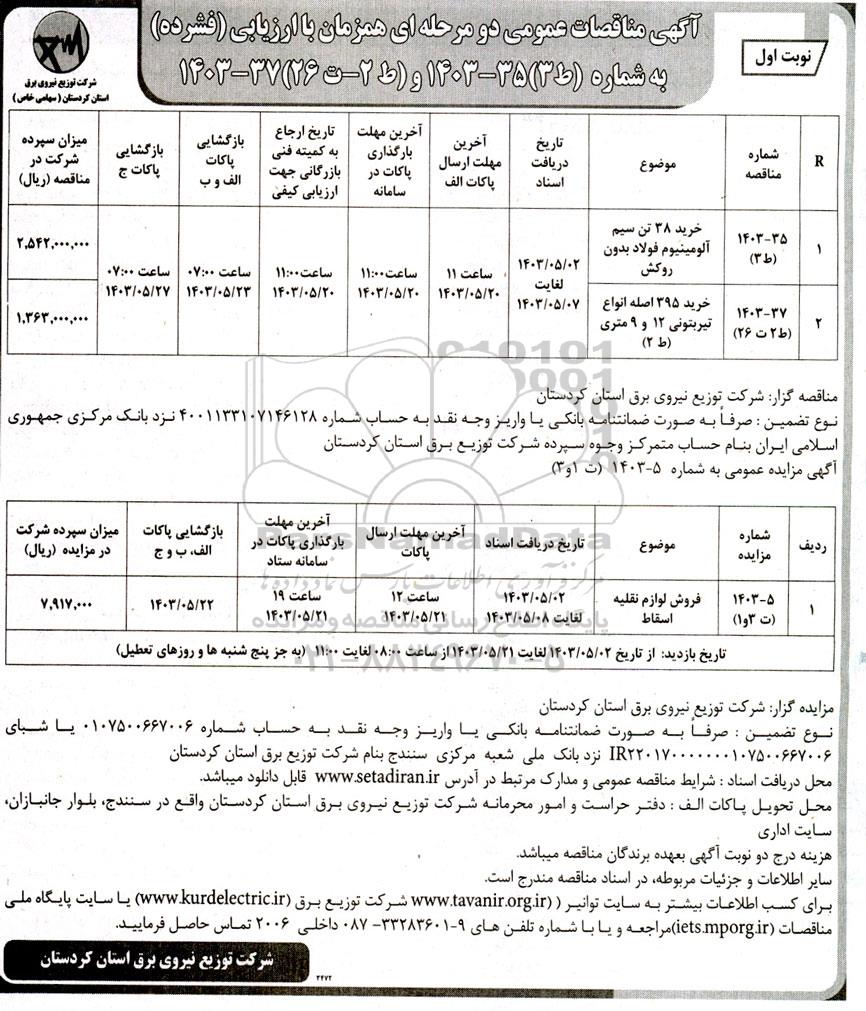 آگهی مناقصات عمومی دو مرحله ای همزمان با ارزیابی (فشرده)
به شماره (ط۳)۳۵-۱۴۰۳ و (ط ۲-ت ۲۶)۳۷-۱۴۰۳
نوبت اول
شرکت توزیع نیروی برق
استان کردستان (سهامی خاص)
R
شماره مناقصه
موضوع
تاریخ دریافت اسناد
آخرین مهلت ارسال پاکات الف
آخرین مهلت بارگذاری پاکات در سامانه
تاریخ ارجاع به کمیته فنی بازرگانی جهت ارزیابی کیفی
بازگشایی پاکات الف و ب
بازگشایی پاکات ج
میزان سپرده شرکت در مناقصه (ریال)
۱
۱۴۰۳-۳۵
(ط۳)
خرید ۳۸ تن سیم آلومینیوم فولاد بدون روکش
۱۴۰۳/۰۵/۰۲
لغایت
۱۴۰۳/۰۵/۰۷
ساعت ۱۱
۱۴۰۳/۰۵/۲۰
ساعت۱۱:۰۰
۱۴۰۳/۰۵/۲۰
ساعت۱۱:۰۰
۱۴۰۳/۰۵/۲۰
ساعت ۰۷:۰۰
۱۴۰۳/۰۵/۲۳
ساعت ۰۷:۰۰
۱۴۰۳/۰۵/۲۷
۲,۵۴۲,۰۰۰,۰۰۰
۲
۱۴۰۳-۳۷
(ط۲ ت ۲۶)
خرید ۳۹۵ اصله انواع تیربتونی ۱۲ و ۹ متری (ط ۲)
۱,۳۶۳,۰۰۰,۰۰۰
مناقصه گزار: شرکت توزیع نیروی برق استان کردستان
نوع تضمین : صرفاً به صورت ضمانتنامه بانکی یا واریز وجه نقد به حساب شماره ۴۰۰۱۱۳۳۱۰۷۱۴۶۱۲۸ نزد بانک مرکزی جمهوری
اسلامی ایران بنام حساب متمرکز وجوه سپرده شرکت توزیع برق استان کردستان
آگهی مزایده عمومی به شماره ۵-۱۴۰۳ (ت ۱و۳)
ردیف
شماره مزایده
موضوع
تاریخ دریافت اسناد
آخرین مهلت ارسال پاکات
آخرین مهلت بارگذاری پاکات در سامانه ستاد
بازگشایی پاکات الف، ب و ج
میزان سپرده شرکت در مزایده (ریال)
۱
۱۴۰۳-۵
(ت ۳و۱)
فروش لوازم نقلیه اسقاط
۱۴۰۳/۰۵/۰۲
لغایت ۱۴۰۳/۰۵/۰۸
ساعت ۱۲
۱۴۰۳/۰۵/۲۱
ساعت ۱۹
۱۴۰۳/۰۵/۲۱
۱۴۰۳/۰۵/۲۲
۷,۹۱۷,۰۰۰
تاریخ بازدید: از تاریخ ۱۴۰۳/۰۵/۰۲ لغایت ۱۴۰۳/۰۵/۲۱ از ساعت ۰۸:۰۰ لغایت ۱۱:۰۰ (به جز پنج شنبه ها و روزهای تعطیل)
مزایده گزار: شرکت توزیع نیروی برق استان کردستان
نوع تضمین : صرفاً به صورت ضمانتنامه بانکی یا واریز وجه نقد به حساب شماره ۰۱۰۷۵۰۰۶۶۷۰۰۶ یا شبای
IR۲۲۰۱۷۰۰۰۰۰۰۰۱۰۷۵۰۰۶۶۷۰۰۶ نزد بانک ملی شعبه مرکزی سنندج بنام شرکت توزیع برق استان کردستان
محل دریافت اسناد : شرایط مناقصه عمومی و مدارک مرتبط در آدرس www.setadiran.ir قابل دانلود میباشد.
محل تحویل پاکات الف : دفتر حراست و امور محرمانه شرکت توزیع نیروی برق استان کردستان واقع در سنندج، بلوار جانبازان،
سایت اداری
هزینه درج دو نوبت آگهی بعهده برندگان مناقصه میباشد.
سایر اطلاعات و جزئیات مربوطه، در اسناد مناقصه مندرج است.
برای کسب اطلاعات بیشتر به سایت توانیر ( (www.tavanir.org.ir شرکت توزیع برق (www.kurdelectric.ir) یا سایت پایگاه ملی
مناقصات (iets.mporg.ir)مراجعه و یا با شماره تلفن های ۹-۳۳۲۸۳۶۰۱- ۰۸۷ داخلی ۲۰۰۶ تماس حاصل فرمایید.
شرکت توزیع نیروی برق استان کردستان
۲۴۷۲
ParsNamadData
مرکز فرآوری اطلاعات پارس نماد داده ها
پایگاه اطلاع رسانی مناقصه و مزایده
۰۲۱-۸۸۳۴۹۶۷۰-۵